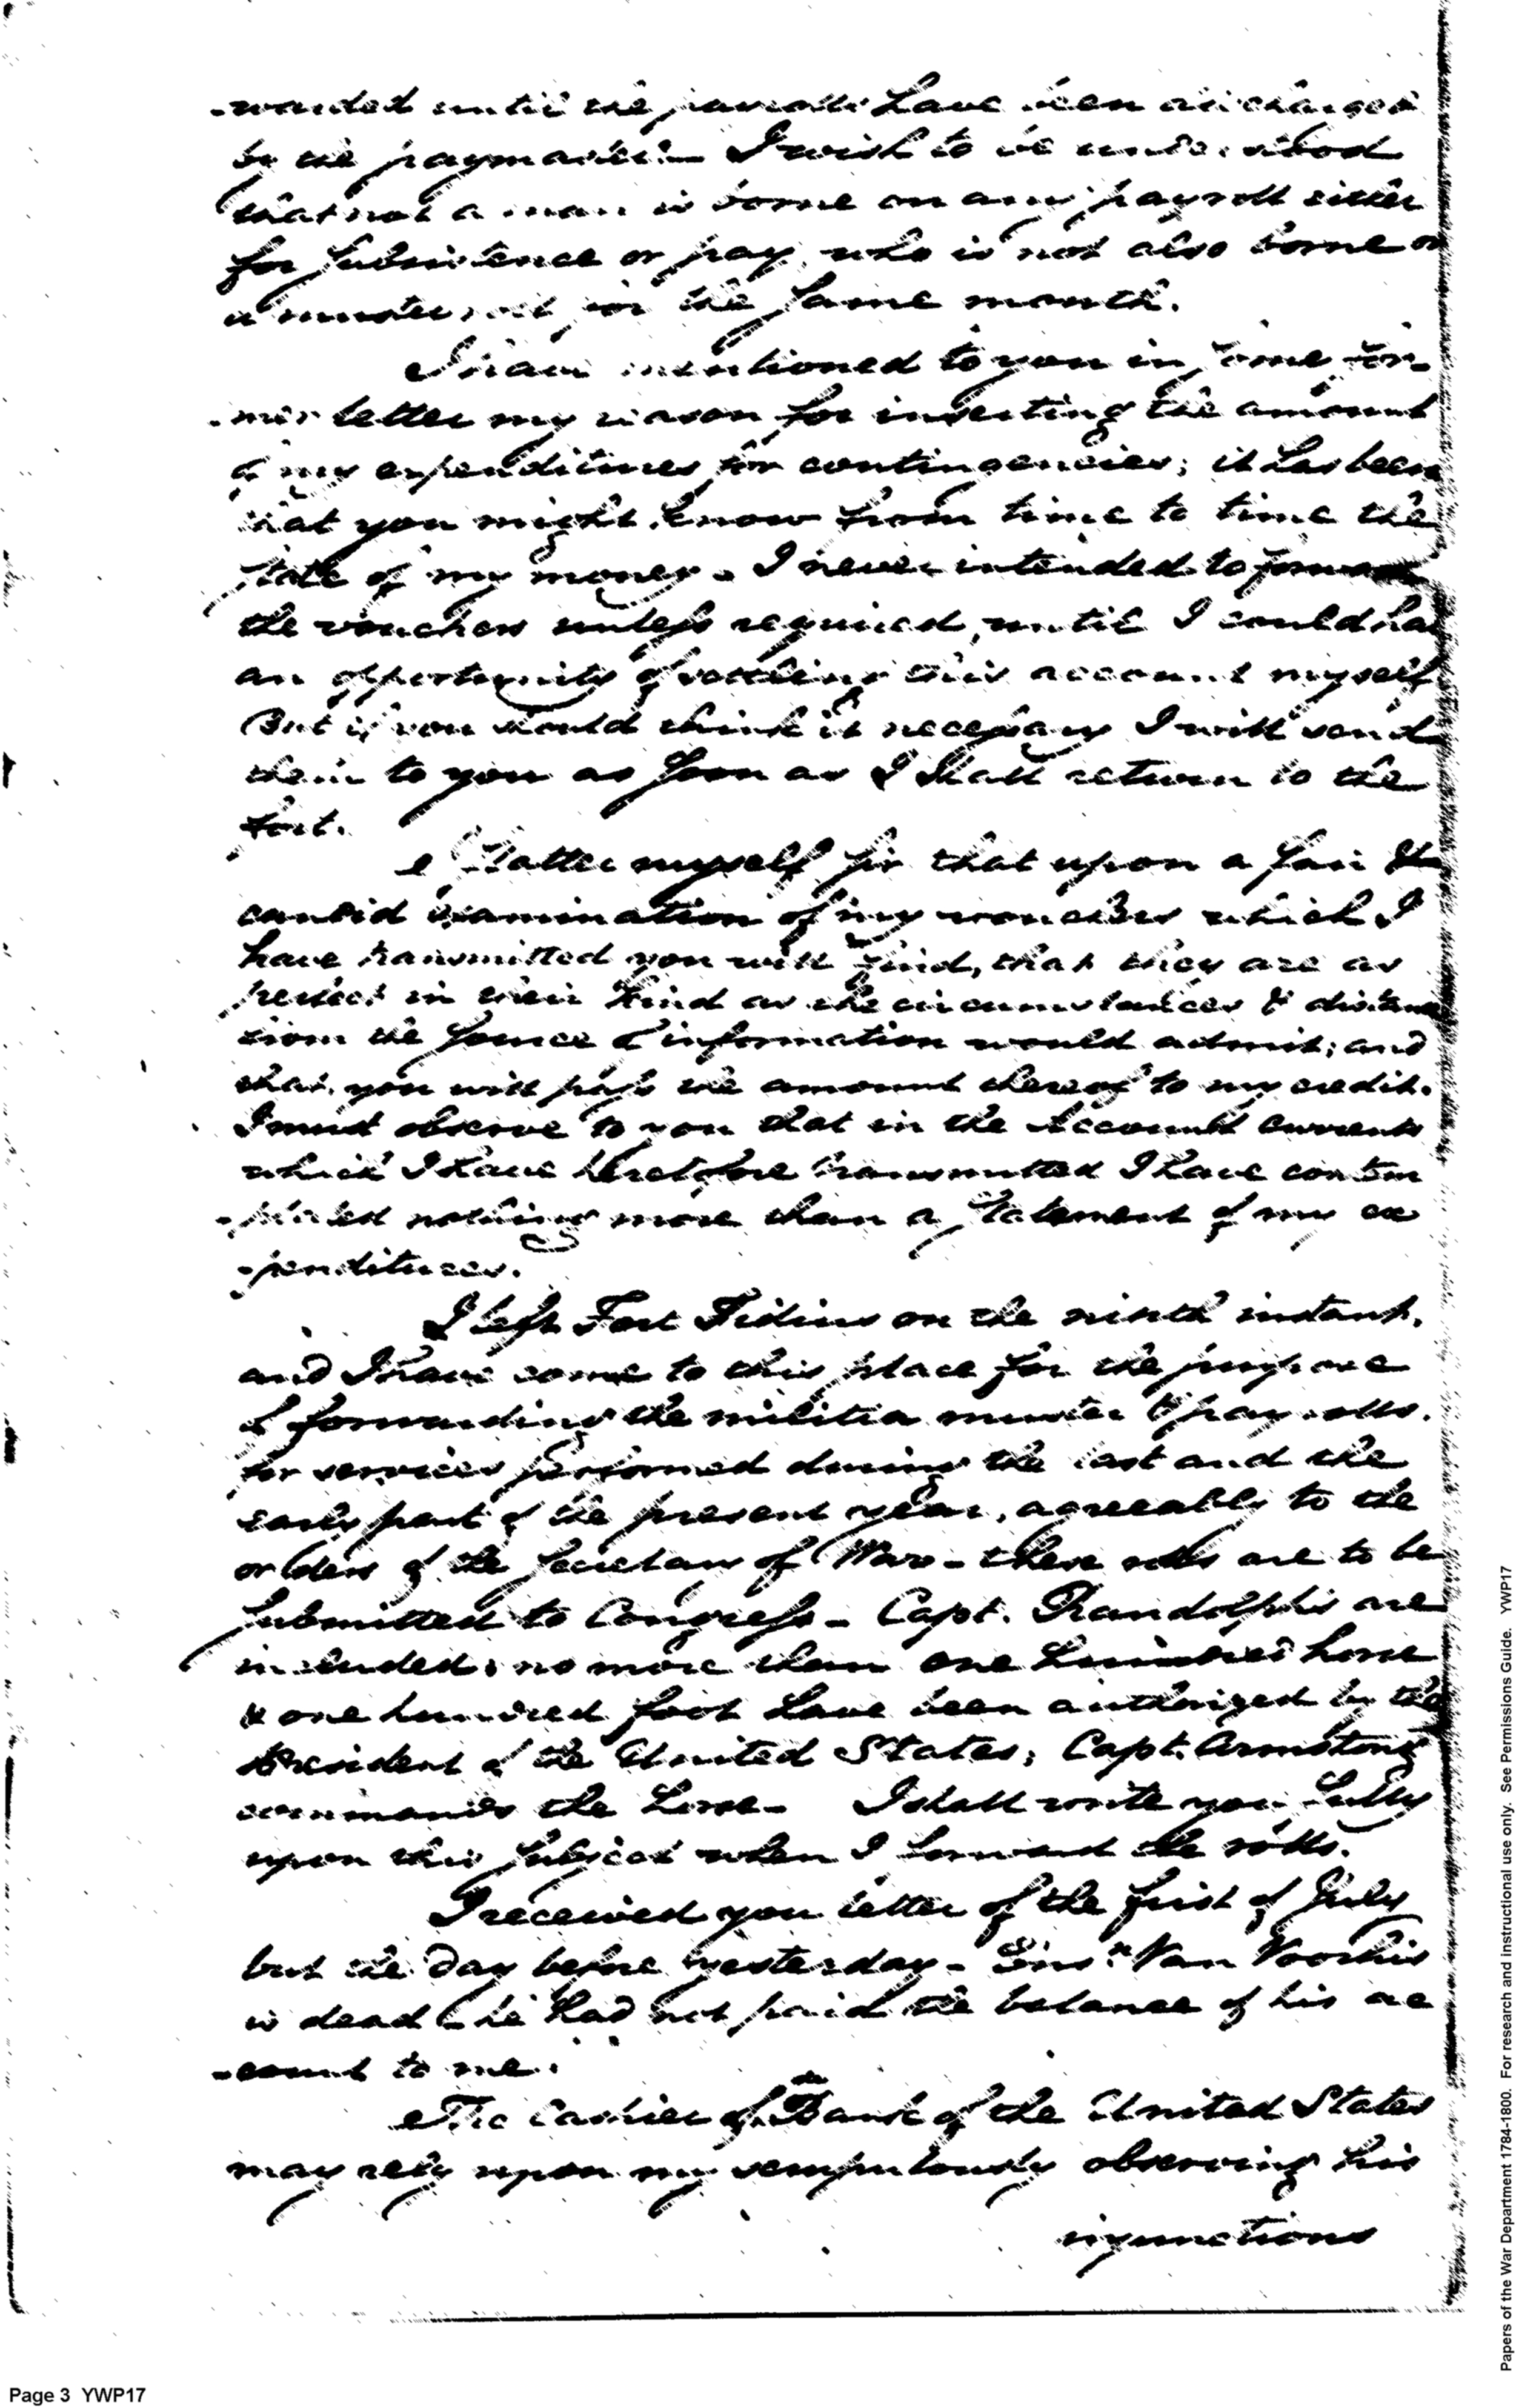 -warded until the payrolls have been discharged
by the paymaster. I wish to be understood
that not a man is borne on any payroll either
for Subsistence or pay, who is not also borne on
a muster roll for the Same month.
I have mentioned to you in Some for-
-mer letter my reason for inserting the amount
of my expenditures for contingencies; it has been
that you might know from time to time the
State of my money. I never intended to forward
the vouchers unless required, until I could ha
an opportunity of settling this account myself
But if you should think it necessary I will send
them to you as Soon as I Shall return to the
fort.
I flatter myself Sir that upon a fair &
candid examination of my vouchers which I
have transmitted you will find, that they are as
perfect in their kind as the circumstances & distance
from the Source of information would admit; and
that you will pass the amount thereof to my credit.
I must observe to you that in the Accounts currents
which I have heretofore transmitted I have contem
-plated nothing more than a Statement of my ex
-penditures.
I left Fort Fidius on the ninth instant,
and I have come to this place for the purpose
of forwarding the militia muster & pay rolls.
for services performed during the last and the
early part of the present year, agreeably to the
orders of the Secretary of War - these rolls are to be
Submitted to Congress - Capt. Randolph's are
included; no more than one hundred horse
& one hundred foot have been authorized by the
President of the United States; Capt. Armstong
commands the horse - I shall write you fully
upon this Subject when I forward the rolls.
I received you letter of the first of July
but the day before yesterday - Ensn. Van Voorhis
is dead & he had not paid the balance of his ac
-count to me.
The Cashier of the Bank of the United States
may rely upon my scrupulously observing his
injunctions
Page 3 YWP17
Papers of the War Department 1784-1800. For research and instructional use only. See Permissions Guide. YWP17